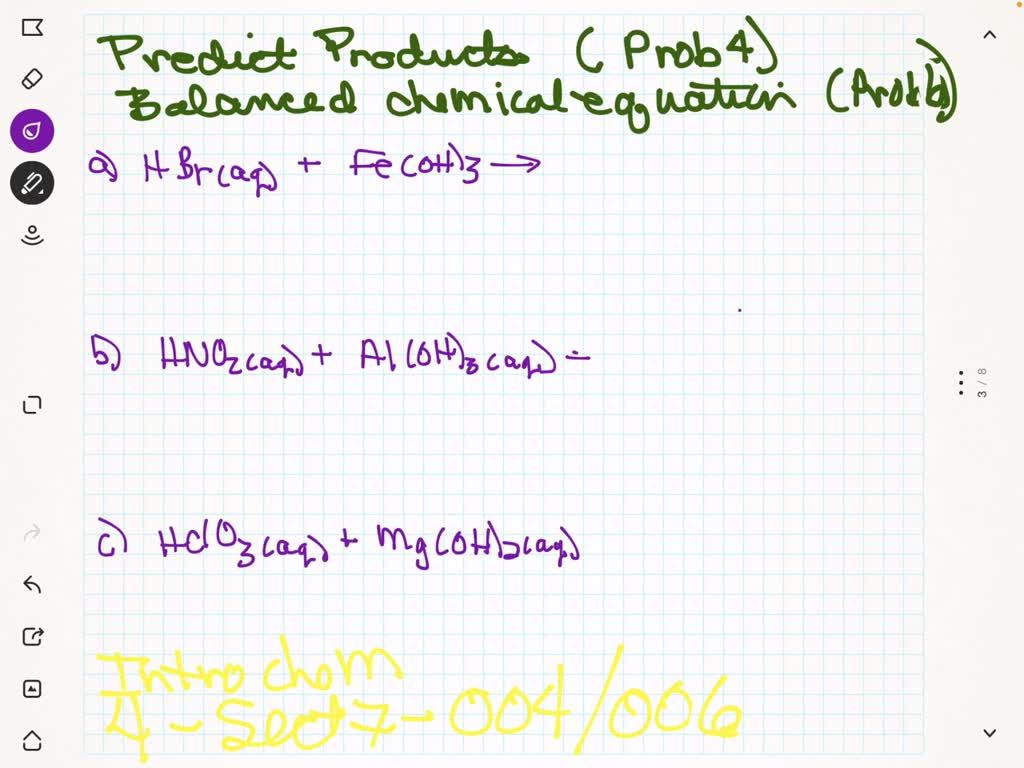 Predict Products (Prob 4)
Balanced chemical equation (Prob 6)
a) HBr(aq) + Fe(OH)3 →
b) HNO2(aq) + Al(OH)3(aq) -
c) HClO3(aq) + Mg(OH)2(aq)
3 / 8
Intro chem
4 - Sect 7 - 004/006